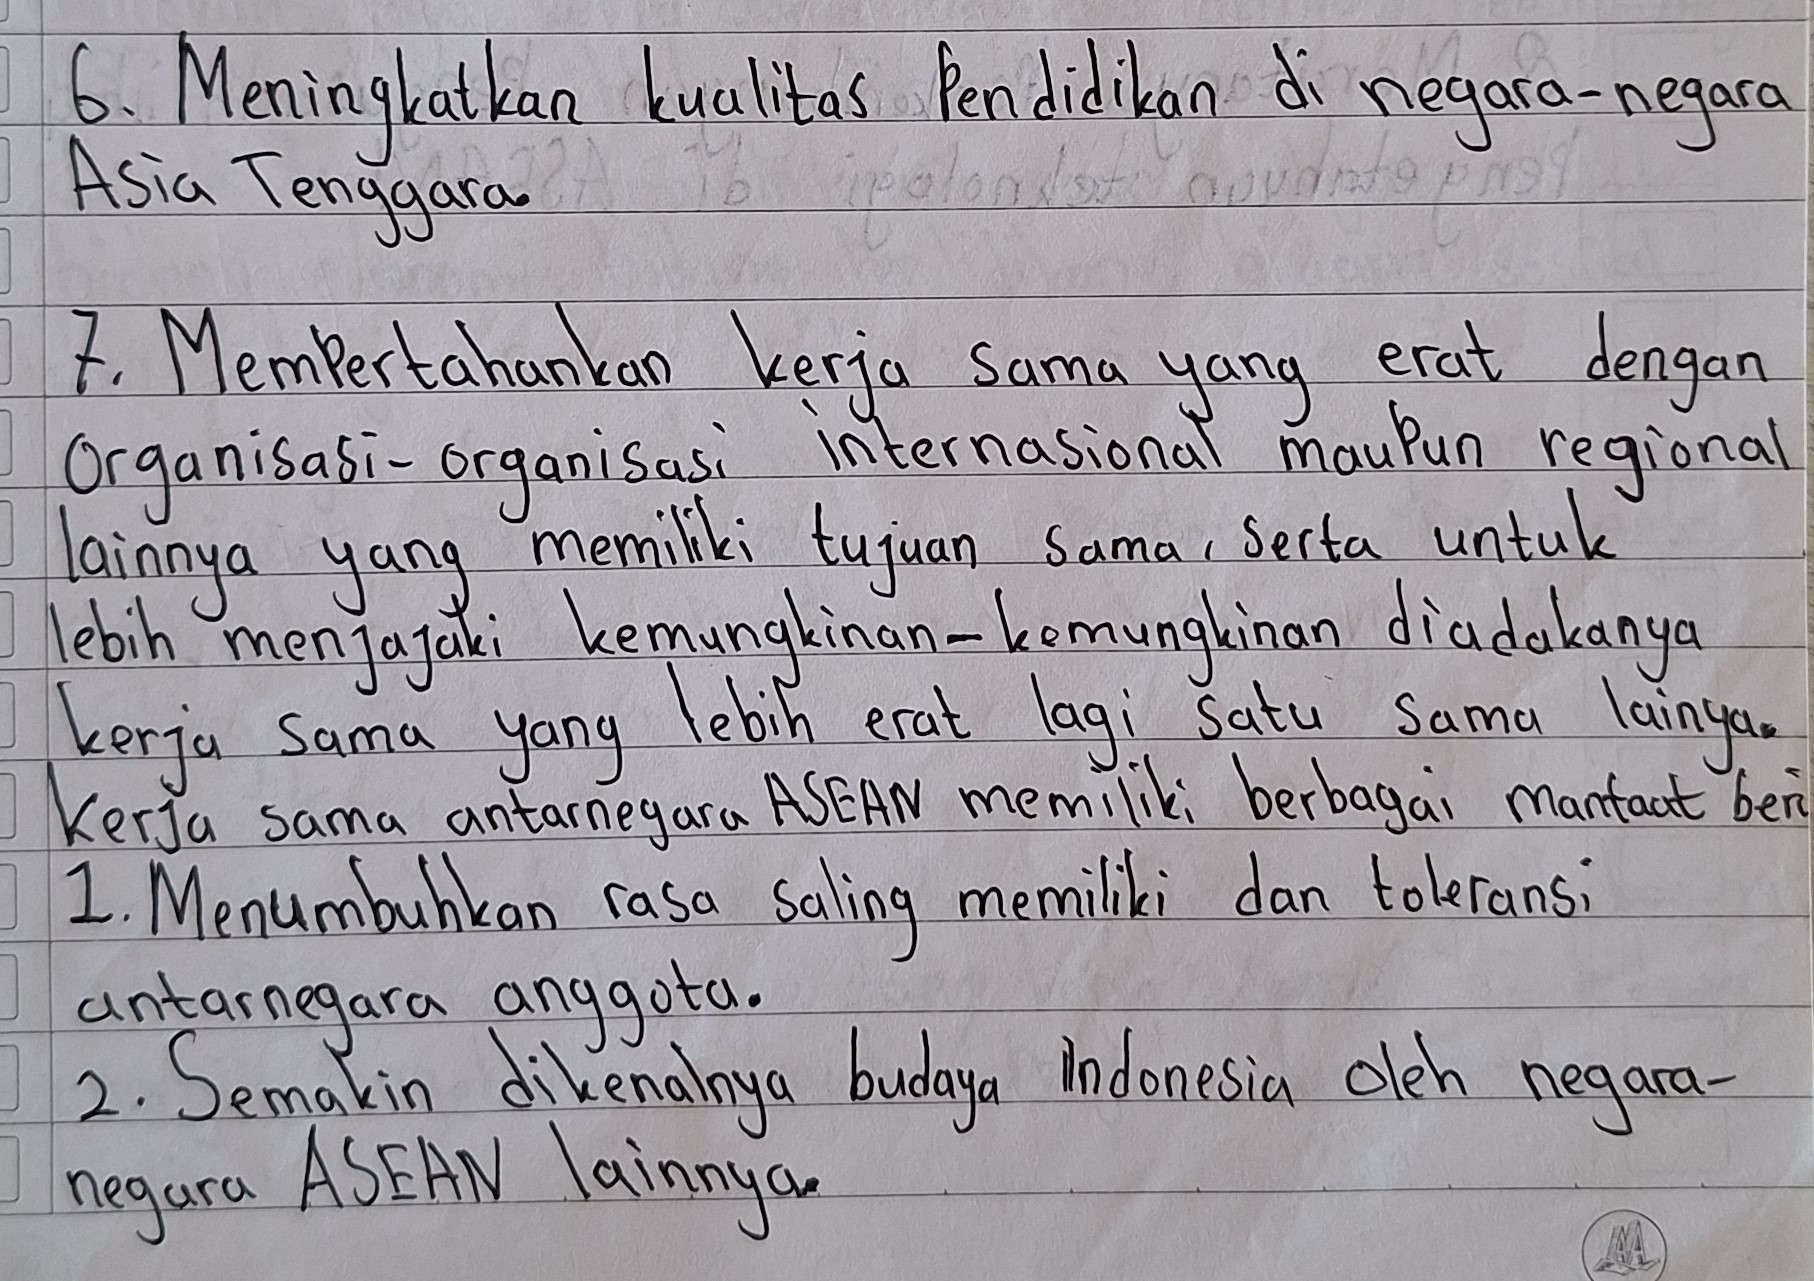 6. Meningkatkan kualitas Pendidikan di negara-negara
Asia Tenggara.
7. Mempertahankan kerja sama yang erat dengan
organisasi-organisasi internasional maupun regional
lainnya yang memiliki tujuan sama, serta untuk
lebih menjajaki kemungkinan-kemungkinan diadakanya
kerja sama yang lebih erat lagi satu sama lainya.
Kerja sama antarnegara ASEAN memiliki berbagai manfaat beri
1. Menumbuhkan rasa saling memiliki dan toleransi
antarnegara anggota.
2. Semakin dikenalnya budaya Indonesia oleh negara-
negara ASEAN lainnya.